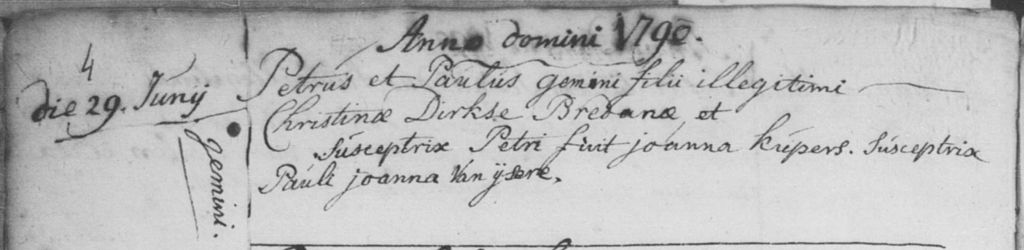 Anno domini 1790.
4
die 29. Junij
gemini.
Petrus et Paulus gemini filii illegitimi
Christinæ Dirkse Bredanæ et
Susceptrix Petri fuit joanna kúpers. Susceptrix
Pauli joanna Van